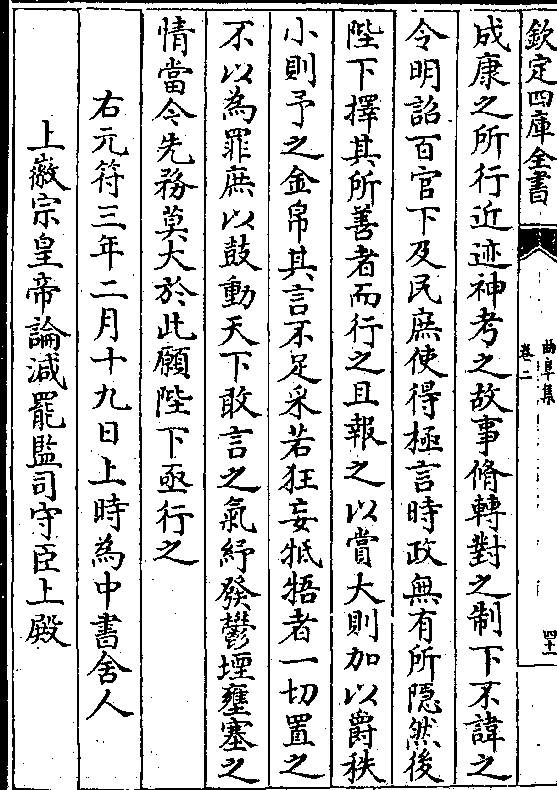 欽定四庫全書
曲阜集
卷二
四十一
成康之所行近迹神考之故事脩轉對之制下不諱之
令明詔百官下及民庶使得極言時政無有所隠然後
陛下擇其所善者而行之且報之以賞大則加以爵秩
小則予之金帛其言不足采若狂妄牴牾者一切置之
不以為罪庶以鼓動天下敢言之氣紓發鬱堙壅塞之
情當今先務莫大於此願陛下亟行之
右元符三年二月十九日上時為中書舍人
上徽宗皇帝論減罷監司守臣上殿